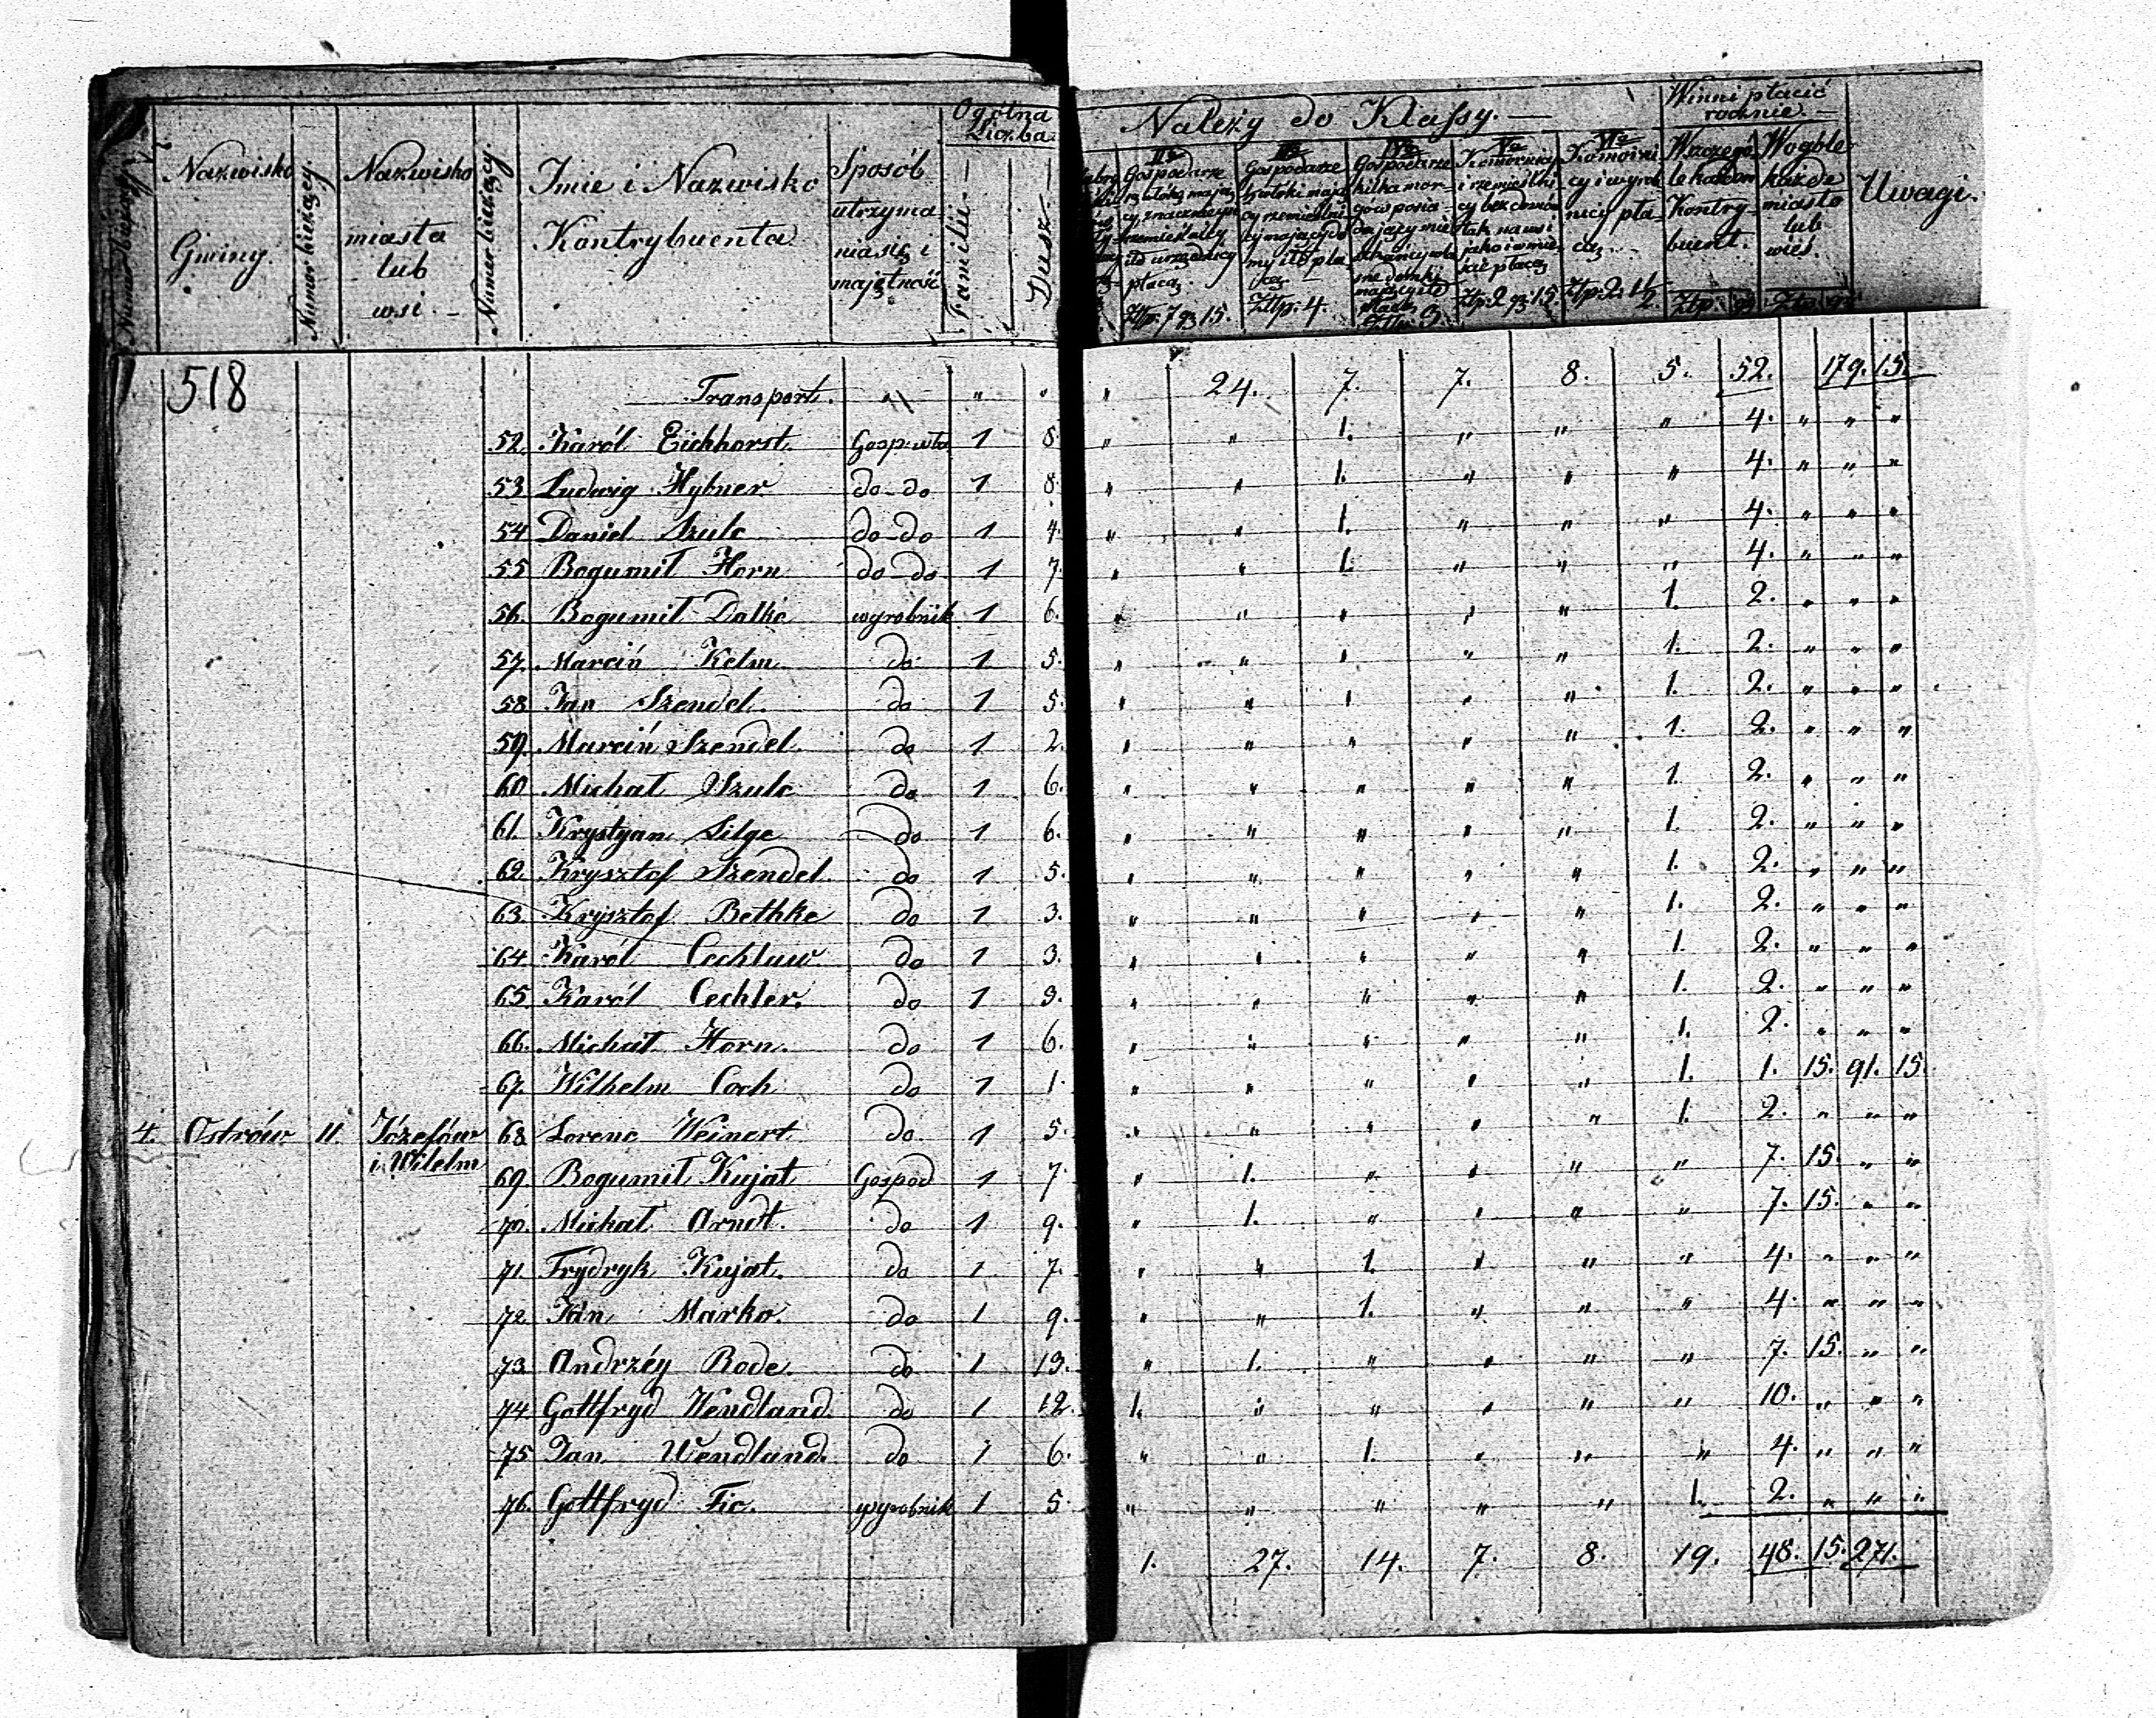 Nazwisko Gminy.
Numer bieżący.
Nazwisko miasta lub wsi.
Numer bieżący.
Imie i Nazwisko Kontrybuenta
Sposób utrzymania się i majętność
Ogólna Liczba
Familii
Dusz
Należy do Klassy.
Winni płacić rocznie.
Uwagi.
IIa Gospodarze
płacą. Złtp. 7 gr 15.
IIIa Gospodarze
Złtp. 4.
IVa Gospodarze kilka mor-
Złtp. 3
Va Komornicy i rzemieślni-
Złtp. 2 gr 15
VIa Komorni-
cy i wyrob
nicy pła-
cą
Złtp. 2.
W szczegó-
le każden
Kontry-
buent.
Złtp. gr
W ogóle
każde
miasto
lub
wieś.
Złtp. gr.
518 Transport. " " " " 24. 7. 7. 8. 5. 52. 179. 15.
52. Karól Eichhorst. 1 8 " " 1. " " " 4. " " "
53 Ludwig Hybner do-do 1 8 " " 1. " " " 4. " " "
54 Daniel Szulc do-do 1 4. " " 1. " " " 4. " " "
55 Bogumił Horn do-do 1 7. " " 1. " " " 4. " " "
56. Bogumił Dalke wyrobnik 1 6. " " " " " 1. 2. " " "
57. Marcin Kelm do 1 5. " " " " " 1. 2. " " "
58 Jan Szendel. do 1 5. " " " " " 1. 2. " " "
59. Marcin Szendel. do 1 2. " " " " " 1. 2. " " "
60. Michał Szulc do 1 6. " " " " " 1. 2. " " "
61. Krystyan Silge do 1 6. " " " " " 1. 2. " " "
62. Krysztof Szendel do 1 5. " " " " " 1. 2. " " "
63. Krysztof Bethke do 1 3. " " " " " 1. 2. " " "
64. Karól Cechlaw. do 1 3. " " " " " 1. 2. " " "
65. Karól Cechler. do 1 3. " " " " " 1. 2. " " "
66. Michał Horn. do 1 6. " " " " " 1. 2. " " "
67. Wilhelm Coch do 1 1. " " " " " 1. 1. 15. 91. 15.
4. Ostrów 11. Józefów 68 Lorenc Weinert do 1 5. " " " " " 1. 2. " " "
i Wilelm
69. Bogumił Kujat Gospod 1 7. " 1. " " " " 7. 15. " "
70. Michał Arndt. do 1 9. " 1. " " " " 7. 15. " "
71. Frydryk Kujat. do 1 7. " " 1. " " " 4. " " "
72. Jan Marko. do 1 9. " " 1. " " " 4. " " "
73. Andrzéy Bode. do 1 13. " 1. " " " " 7. 15. " "
74 Gottfryd Wendland. do 1 12. 1. " " " " " 10. " " "
75 Jan Wendland. do 1 6. " " 1. " " " 4. " " "
76. Gottfryd Fic. wyrobnik 1 5. " " " " " 1. 2. " " "
1. 27. 14. 7. 8. 19. 48. 15. 271.